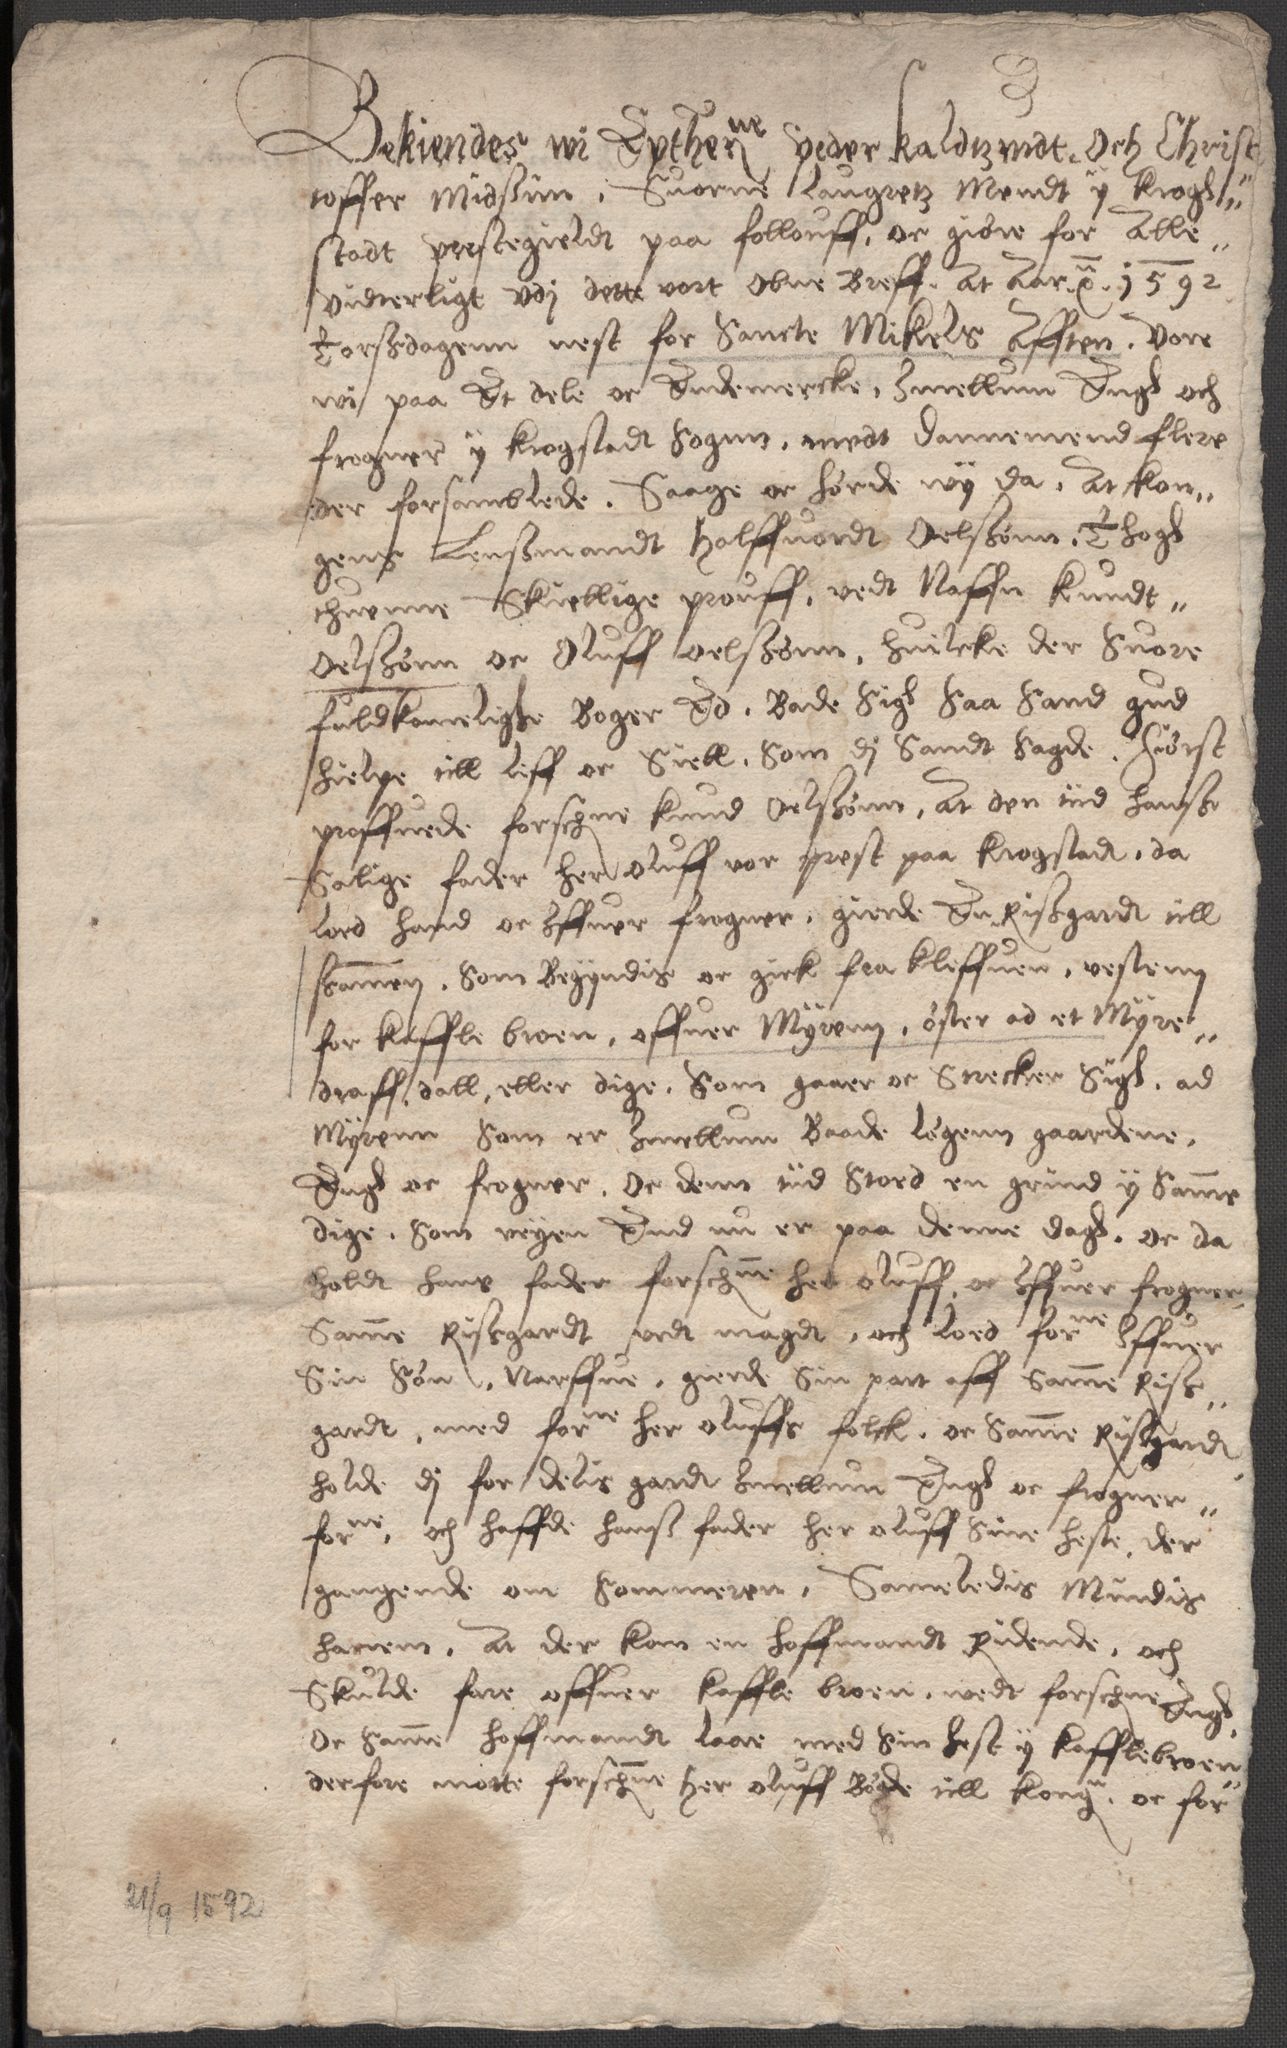 Bekiendes wi Epther:ne peder kaldtzrudt. Och Christ
toffer Midsuin. Suorne Laugretz Mendt y krogh„
stadt prestegieldt paa follouff. oc giøre for Alle„
vidterligt vdj dette vort Obne Breff. At Aar 1592
Torsdagenn nest for Sancte Mikels Afften. Vore
wi paa Et dele oc Endemercke, Emellum Eng och
frogner y krogstadt Sognn, medt dannemend flere
der forsamblede. Saage oc hørde wy da, At kon„
gens Lensmandt halffuordt Oelssønn, Thog
thuenne Skiellige prouff, vedt Naffn knudt„
Oelssønn oc Oluff oelssønn, huilcke der Suore
fuldkomelighe Boger Ed. Bade Sig Saa Sand gud
hielpe till Leff oc Siell. Som dj Sandt Sagde. Først
proffuede forschne knud Oelssønn, At den tiid hanss
Salige fader her oluff vor prest paa krogstadt, da
Lod hand oc Iffuer frogner, gierde En Rissgardt till
samen, Som Begyndis oc gick fra kleffuen, vestenn
for kaffle broen, offuer Myrenn, øster ad et Myre„
draff, dall, eller dige. Som gaaer oc Strecker Sig, ad
Myrenn Som er Emellum Baade Løgenn gaardene,
Eng oc frogner. Oc denn tiid Stod en grind y Samme
dige, Som veyen End nu er paa denne dag. oc da
holdt hans fader forschne her oluff, oc Iffuer frogner,
Samme Rissgardt vedt magdt, och Lod forne Iffuer
Sin Søn, Narffue, gierde Sin part aff Samme Riss„
gardt, med forne her oluffs folck. oc Samme Rissgardt
holde dj for delis gardt Emellum Eng oc frogner„
forne, och haffde hanss fader her oluff Sine heste, der
gangende om Sommeren, Sameledis Mindis
hannem, At der kom en hoffmandt Ridende, och
Skulde fare offuer kaffle broen, wedt forschne Eng,
Oc Samme hoffmandt laae med Sin hest y kafflebroen
derfore motte forschne her oluff Bøde till kong:n oc for„
21/9 1592